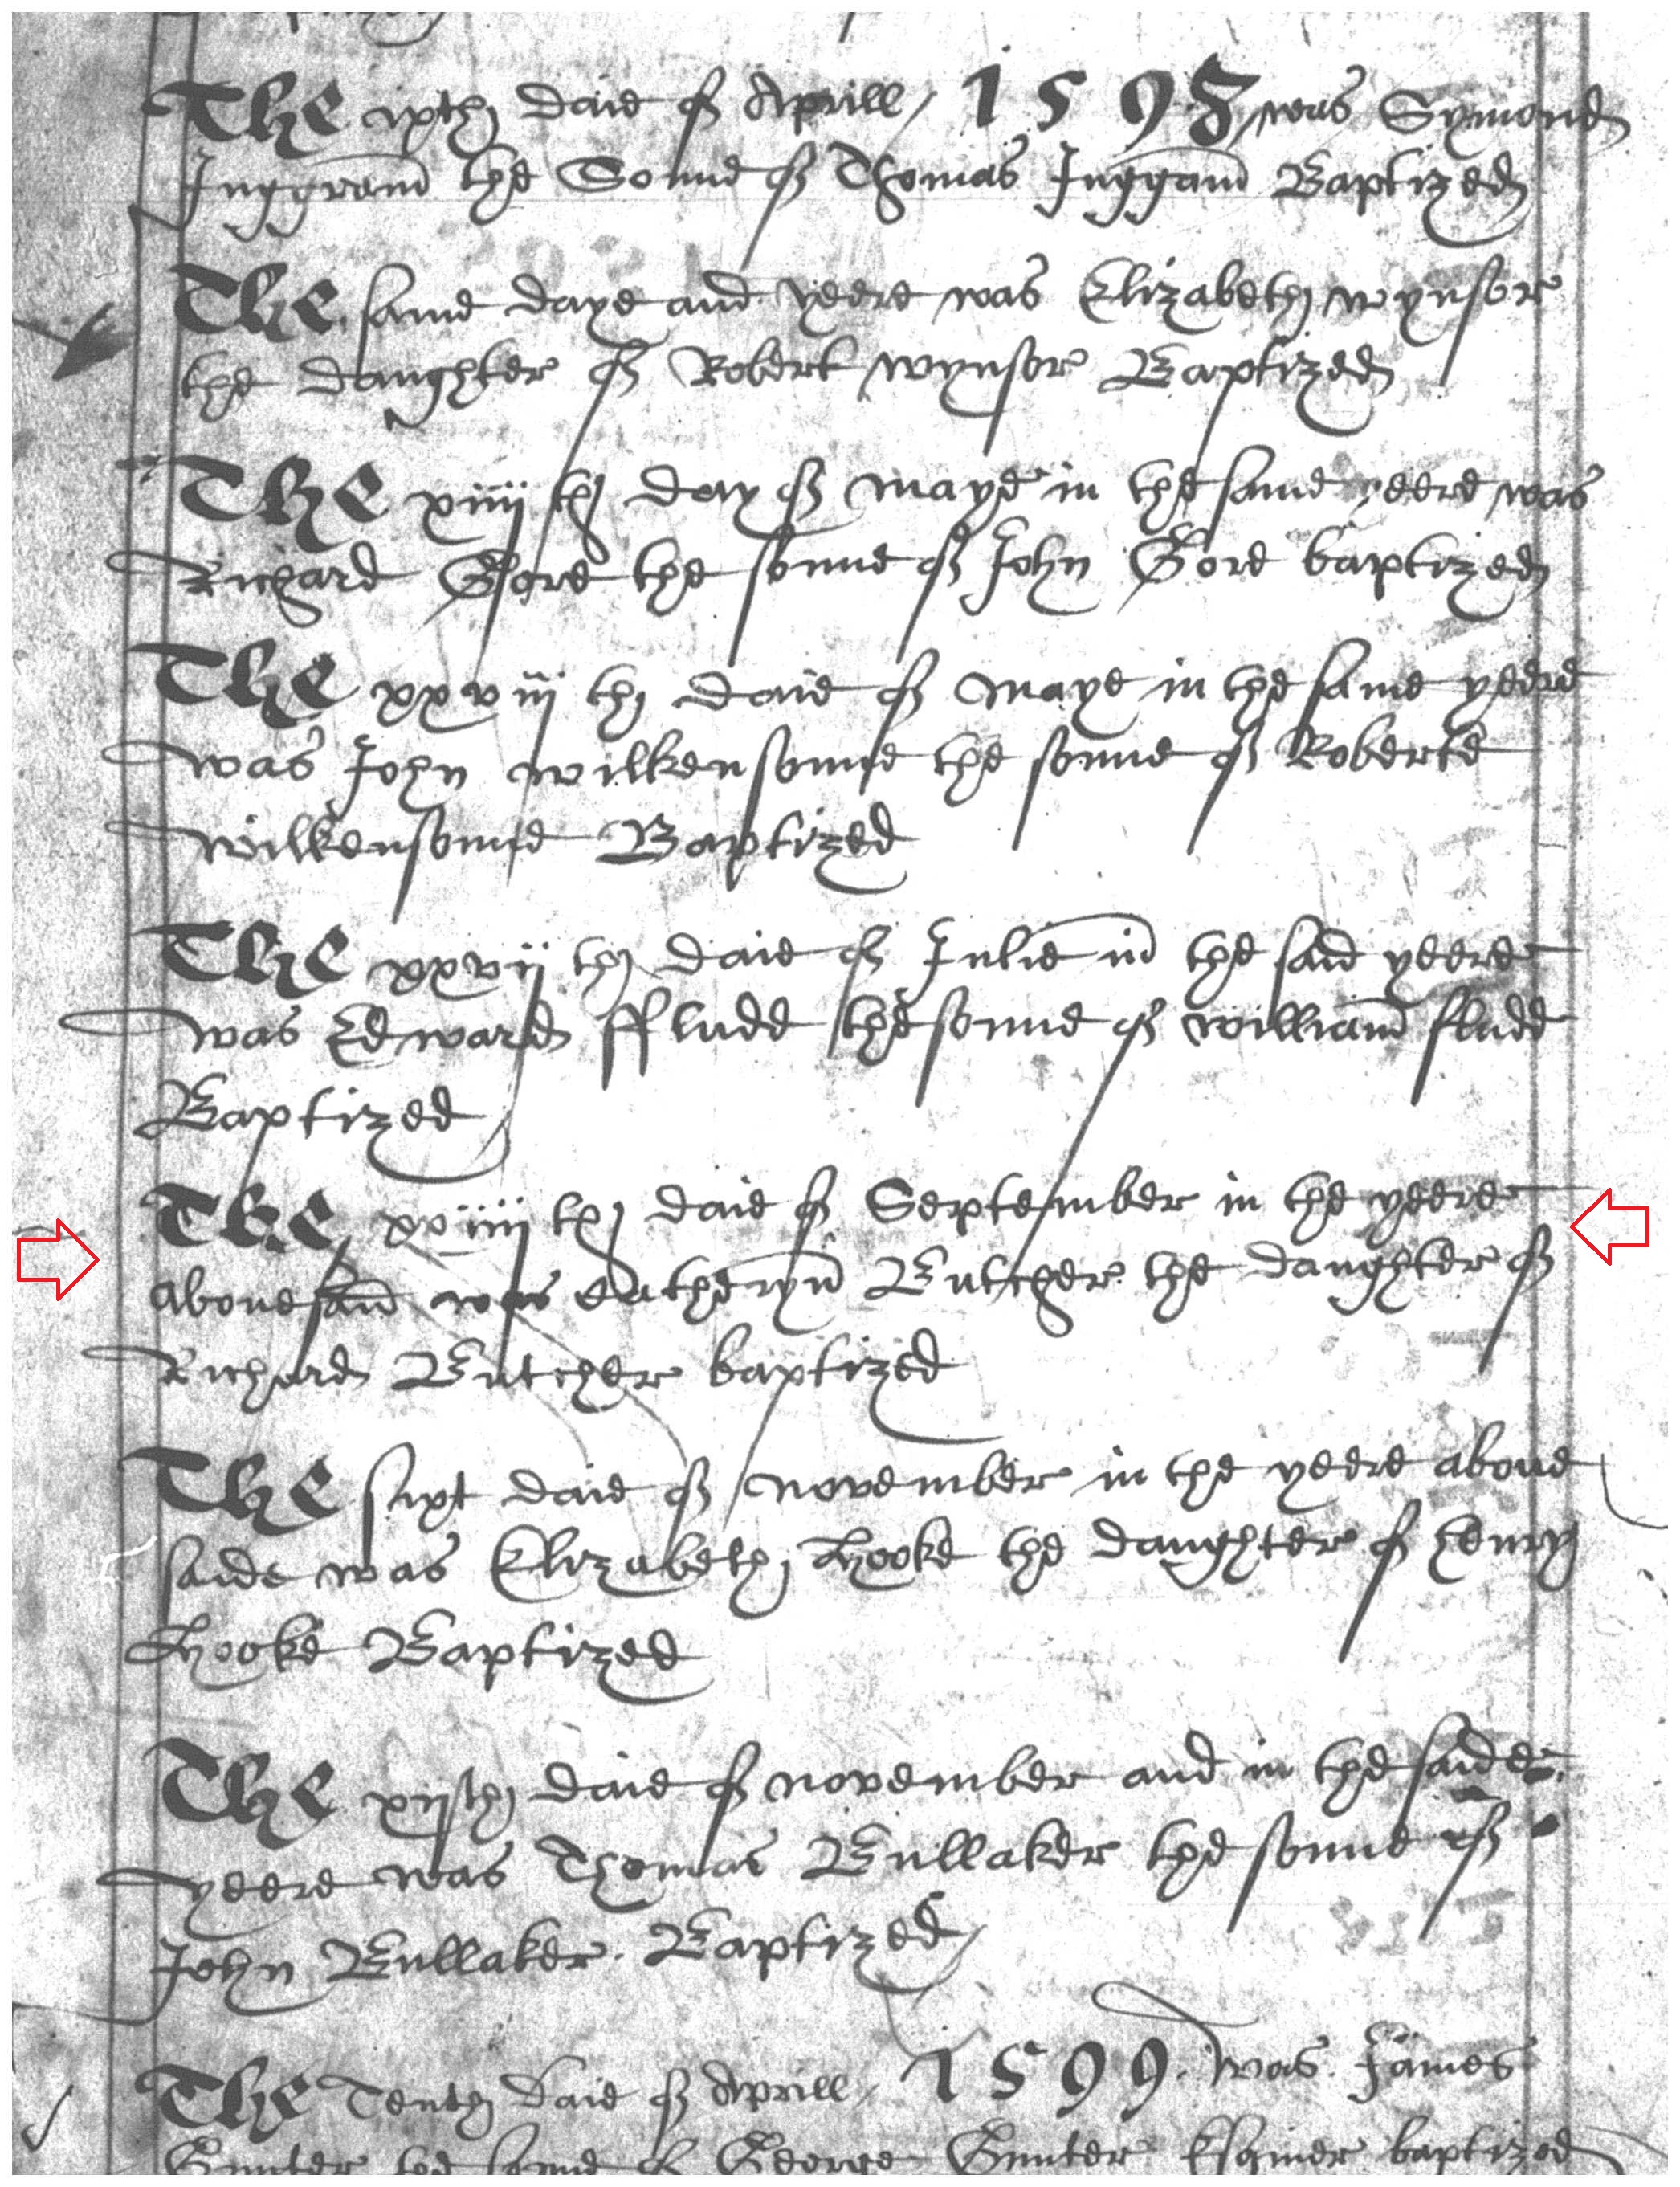 The ixth daie of Aprill / 1598 was Symond
Inggram the Sonne of Thomas Inggam Baptized
The same daye and yeere was Elizabeth wynsor
the daughter of Robert wynsor Baptized
The xiiijth day of maye in the same yeere was
Richard Gore the sonne of John Gore baptized
The xxviijth daie of maye in the same yeere
was John wilkensonne the sonne of Roberte
wilkensonne Baptized
The xxvijth daie of Julie in the said yeere
was Edward ffludd the sonne of william fludd
Baptized
The xxiiijth daie of September in the yeere
abouesaid was Catheryn Butcher the daughter of
Richard Butcher baptized
The sixt daie of november in the yeere aboue
saide was Elizabeth Hooke the daughter of henry
Hooke Baptized
The xijth daie of november and in the saide
yeere was Thomas Bullaker the sonne of
John Bullaker Baptized
The Tenth daie of Aprill / 1599 was James
Gunter the sonne of George Gunter Esquier baptized